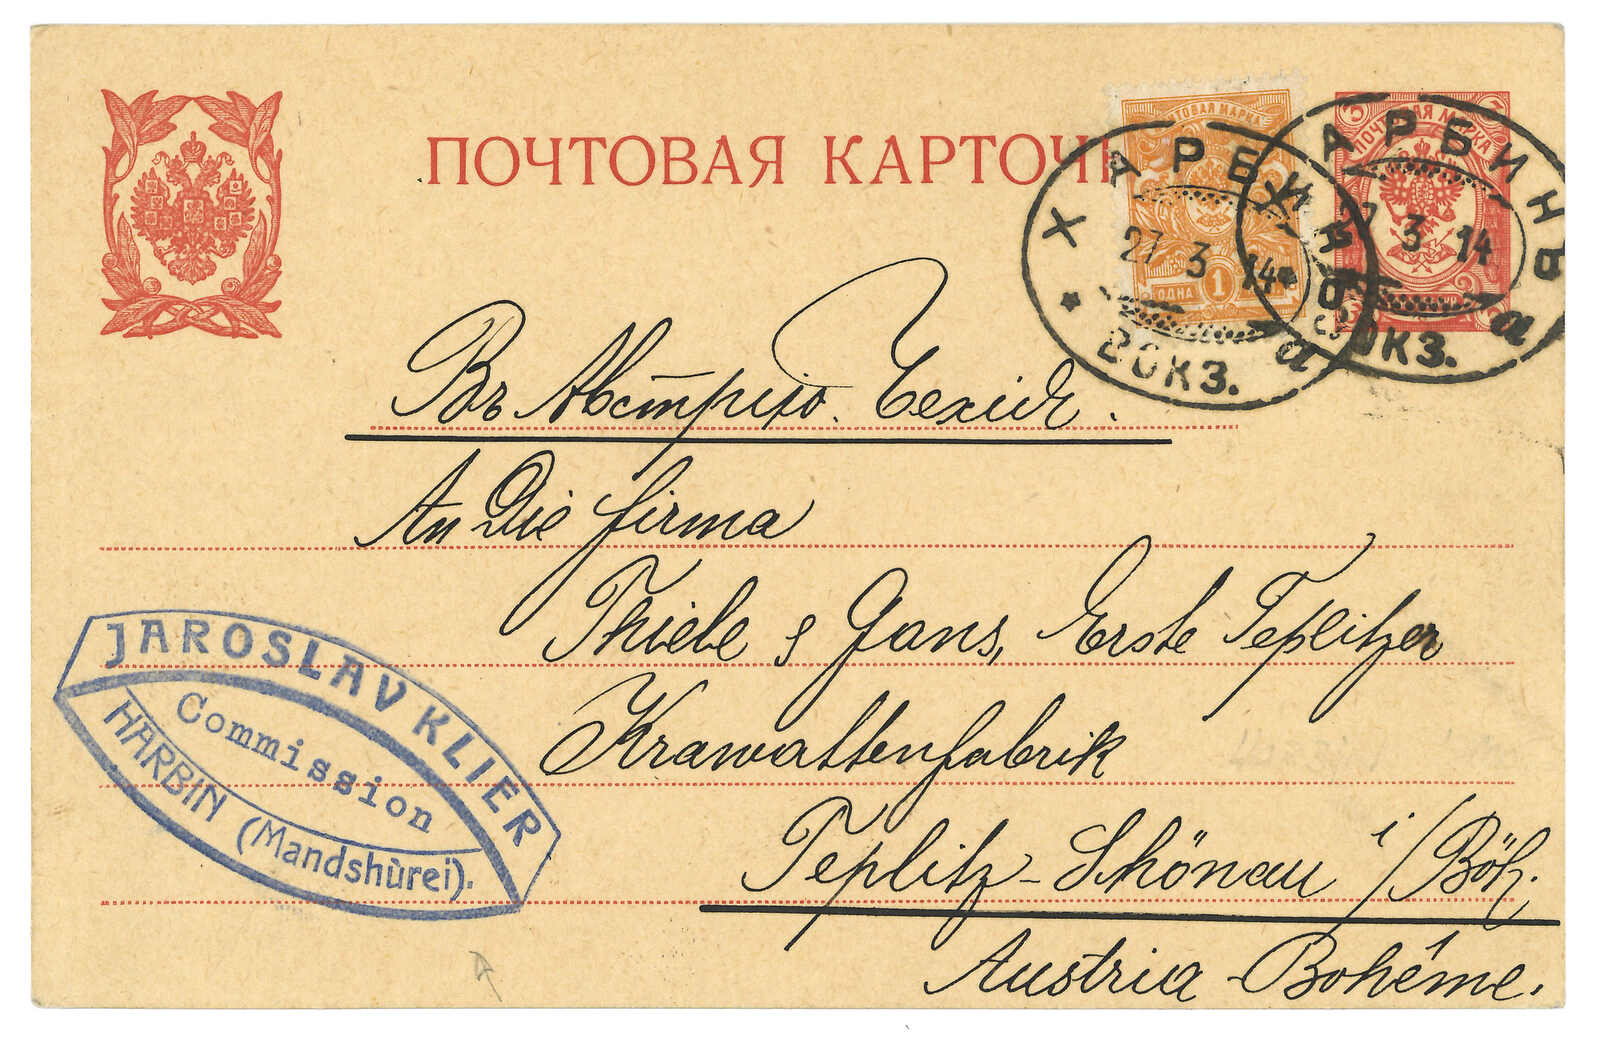 ПОЧТОВАЯ КАРТОЧК
ТОВАЯ МАРКА
ОДНА 1
ПОЧТОВАЯ МАРКА
ХАРБИНЪ
27 3 14
ВОКЗ. а
ХАРБИНЪ
27 3 14
ВОКЗ. а
Въ Австрію. Чехія.
An Die firma
Thiele & Gans, Erste Teplitzer
Krawattenfabrik
Teplitz-Schönau i/Böh.
Austria-Bohême.
JAROSLAV KLIER
Commission
HARBIN (Mandshùrei).